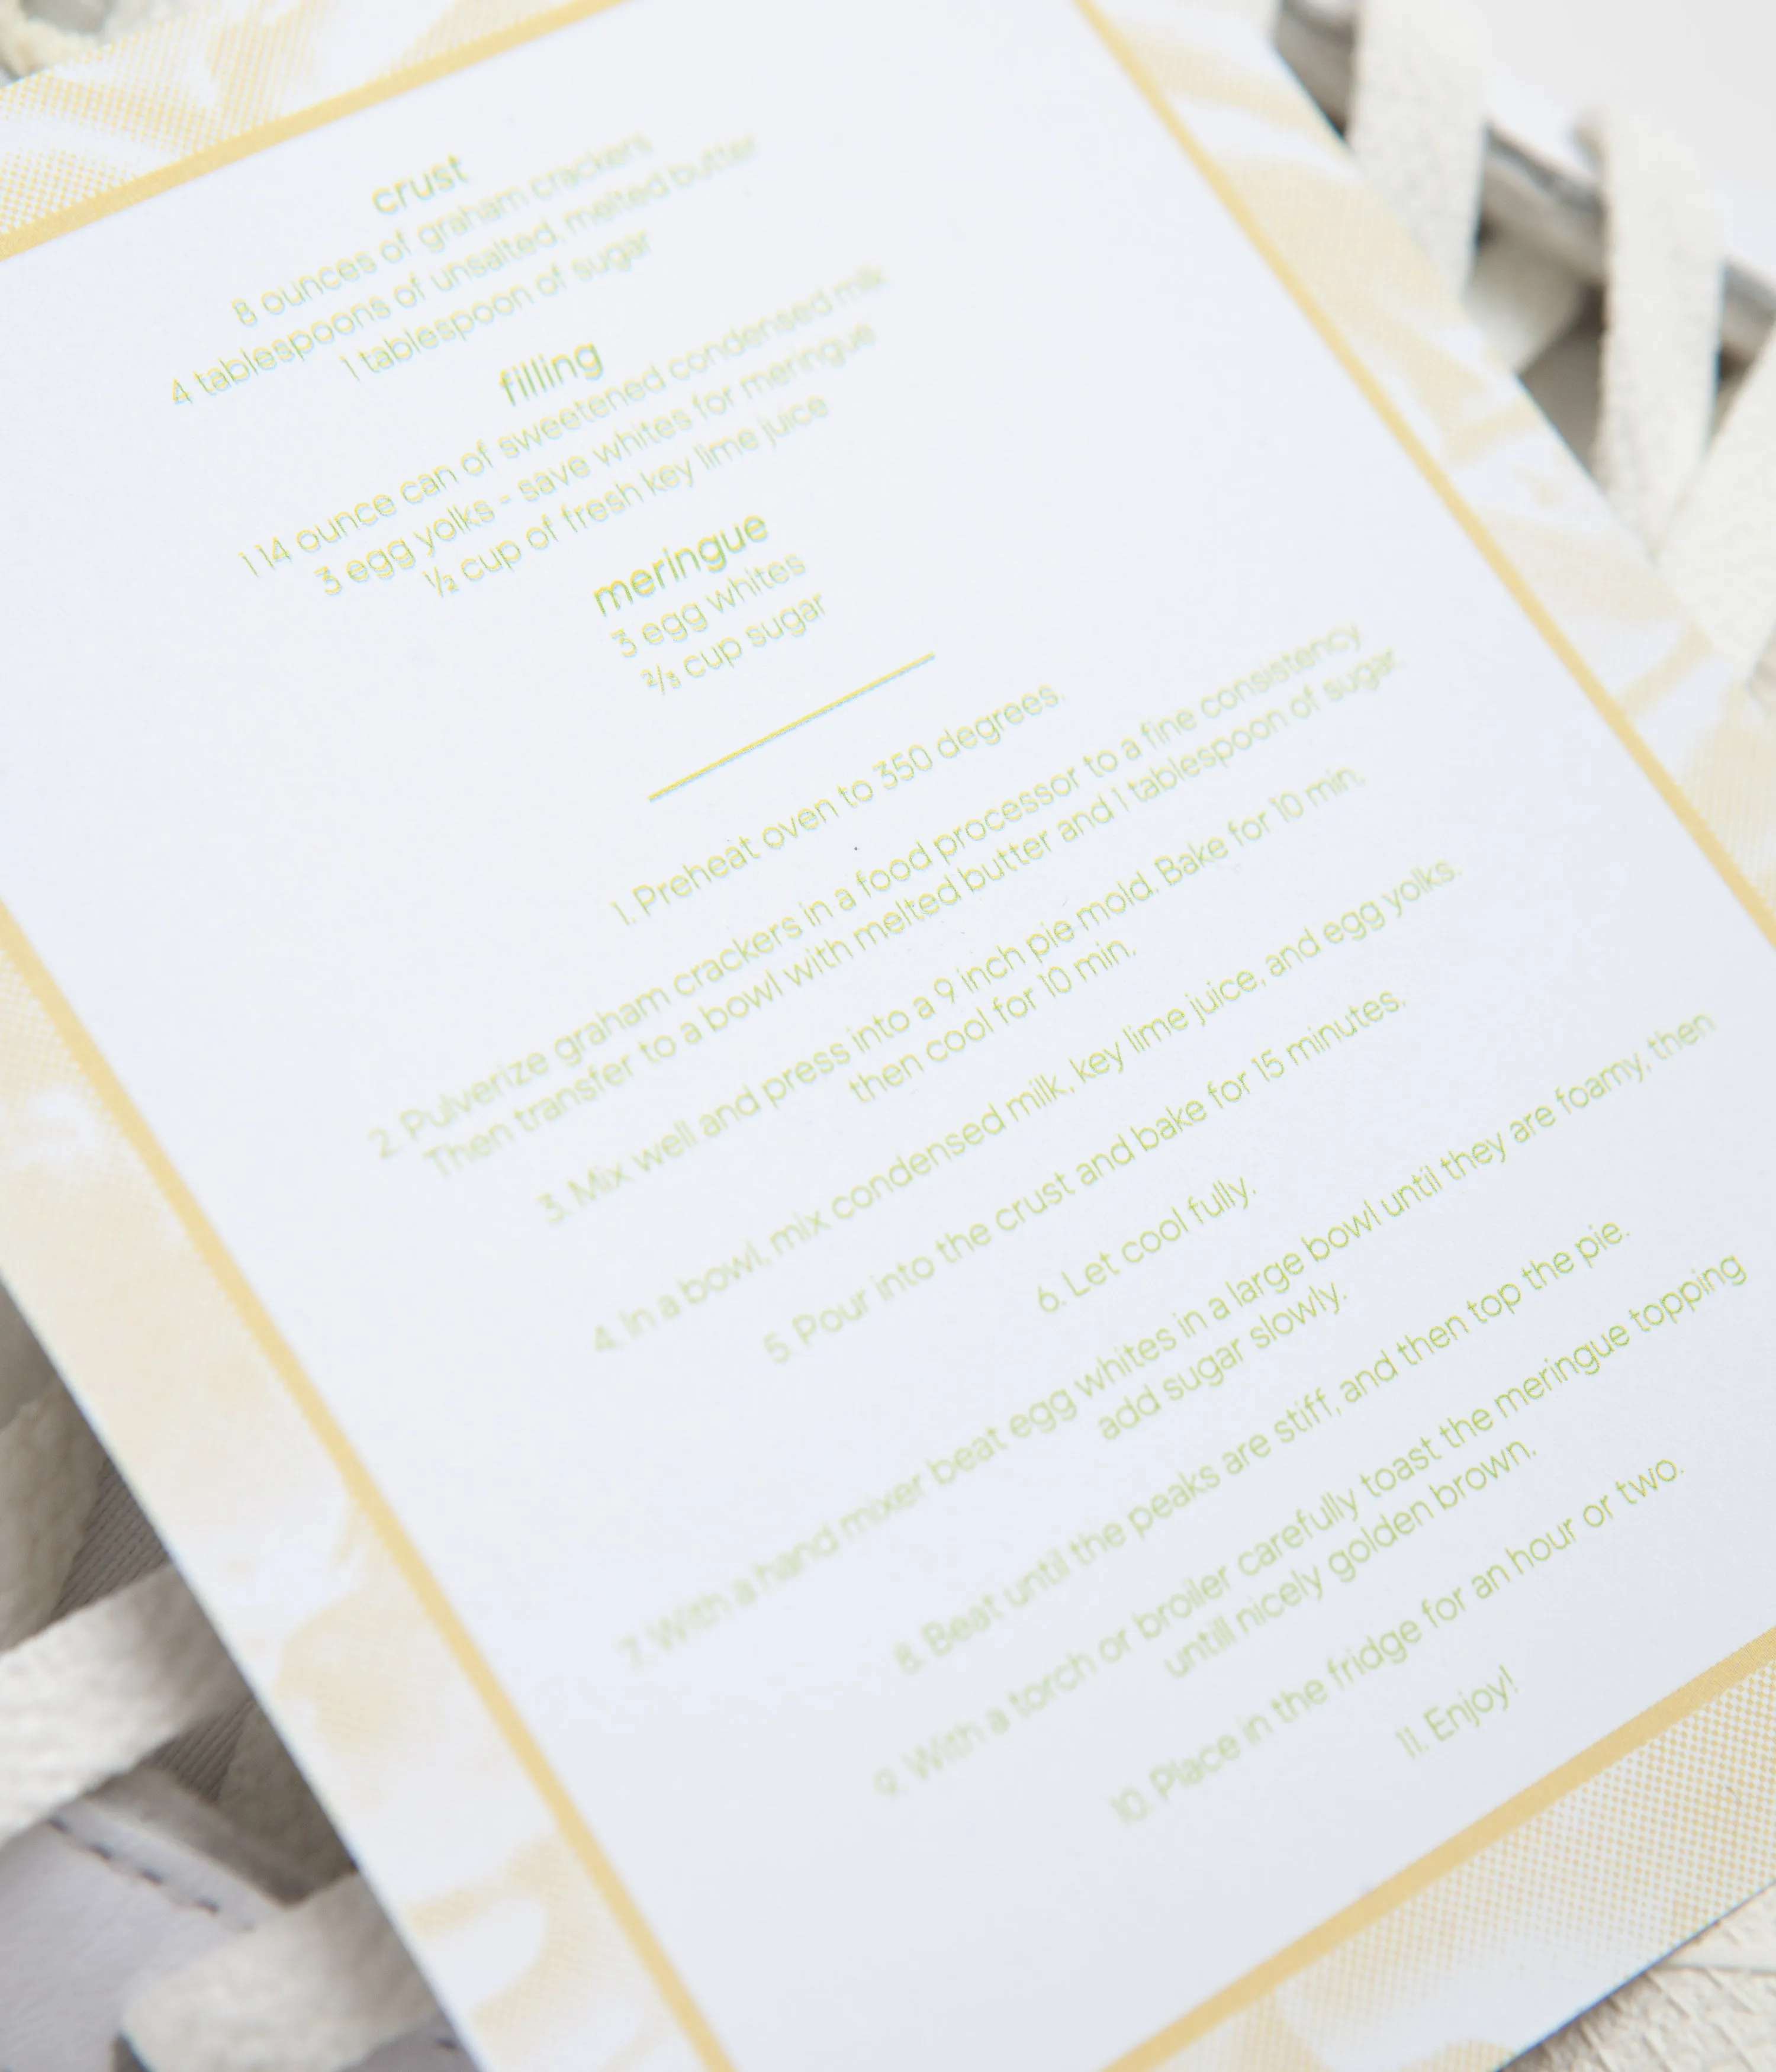 crust
8 ounces of graham crackers
4 tablespoons of unsalted, melted butter
1 tablespoon of sugar
filling
1 14 ounce can of sweetened condensed milk
3 egg yolks - save whites for meringue
½ cup of fresh key lime juice
meringue
3 egg whites
⅔ cup sugar
1. Preheat oven to 350 degrees.
2. Pulverize graham crackers in a food processor to a fine consistency.
Then transfer to a bowl with melted butter and 1 tablespoon of sugar.
3. Mix well and press into a 9 inch pie mold. Bake for 10 min.
then cool for 10 min.
4. In a bowl, mix condensed milk, key lime juice, and egg yolks.
5. Pour into the crust and bake for 15 minutes.
6. Let cool fully.
7. With a hand mixer beat egg whites in a large bowl until they are foamy, then
add sugar slowly.
8. Beat until the peaks are stiff, and then top the pie.
9. With a torch or broiler carefully toast the meringue topping
untill nicely golden brown.
10. Place in the fridge for an hour or two.
11. Enjoy!